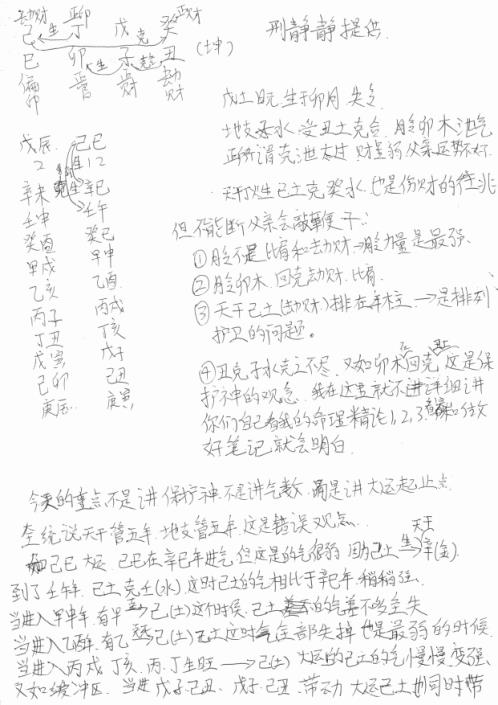 劫财 正财
己 生 丁 戊 克 癸
巳 卯 生 子 合 丑 (坤)
偏印 官 财 劫财
邢静静提供
戊土日元,生于卯月,失令
地支子水,受丑土克合,月令卯木泄气
正所谓克泄太过,财星弱,父亲运势不好。
天干火生己土克癸水,也是伤财的征兆
但不能断父亲会敲鞭子:
①月令不是比肩和劫财→月令力量是最强。
②月令卯木,回克劫财、比肩。
③天干己土(劫财)排在年柱→是排列
护卫的问题。
④丑克子水克之不尽,又如卯木回克丑土,这是保
护神的观念,我在这里就不进详细讲
你们自己看我的命理精论1,2,3,
好笔记就会明白。
戊辰 己巳
2 12
辛未 生 辛巳
壬申 壬午
癸酉 癸巳
甲戌 甲申
乙亥 乙酉
丙子 丙戌
丁丑 丁亥
戊寅 戊子
己卯 己丑
庚辰 庚寅
今天的重点不是讲保护神,不是讲气数,而是讲大运起止点
传统说天干管五年,地支管五年,这是错误观点。
如己巳大运,己巳在辛巳年进气,但这是的气很弱,因为己土生辛(金)
到了壬午年,己土克壬(水),这时己土的气相比于辛巳年,稍稍强。
当进入甲申年,有甲→己(土)这个时候,己土的气差不多全失
当进入乙酉年,有乙→己(土)己土这时气全部失掉,也是最弱的时候
当进入丙戌,丁亥,丙、丁生旺→己(土)大运的己土的气慢慢变强
又如缓冲区,当进戊子、己丑,戊子、己丑,带动大运己土协同时带